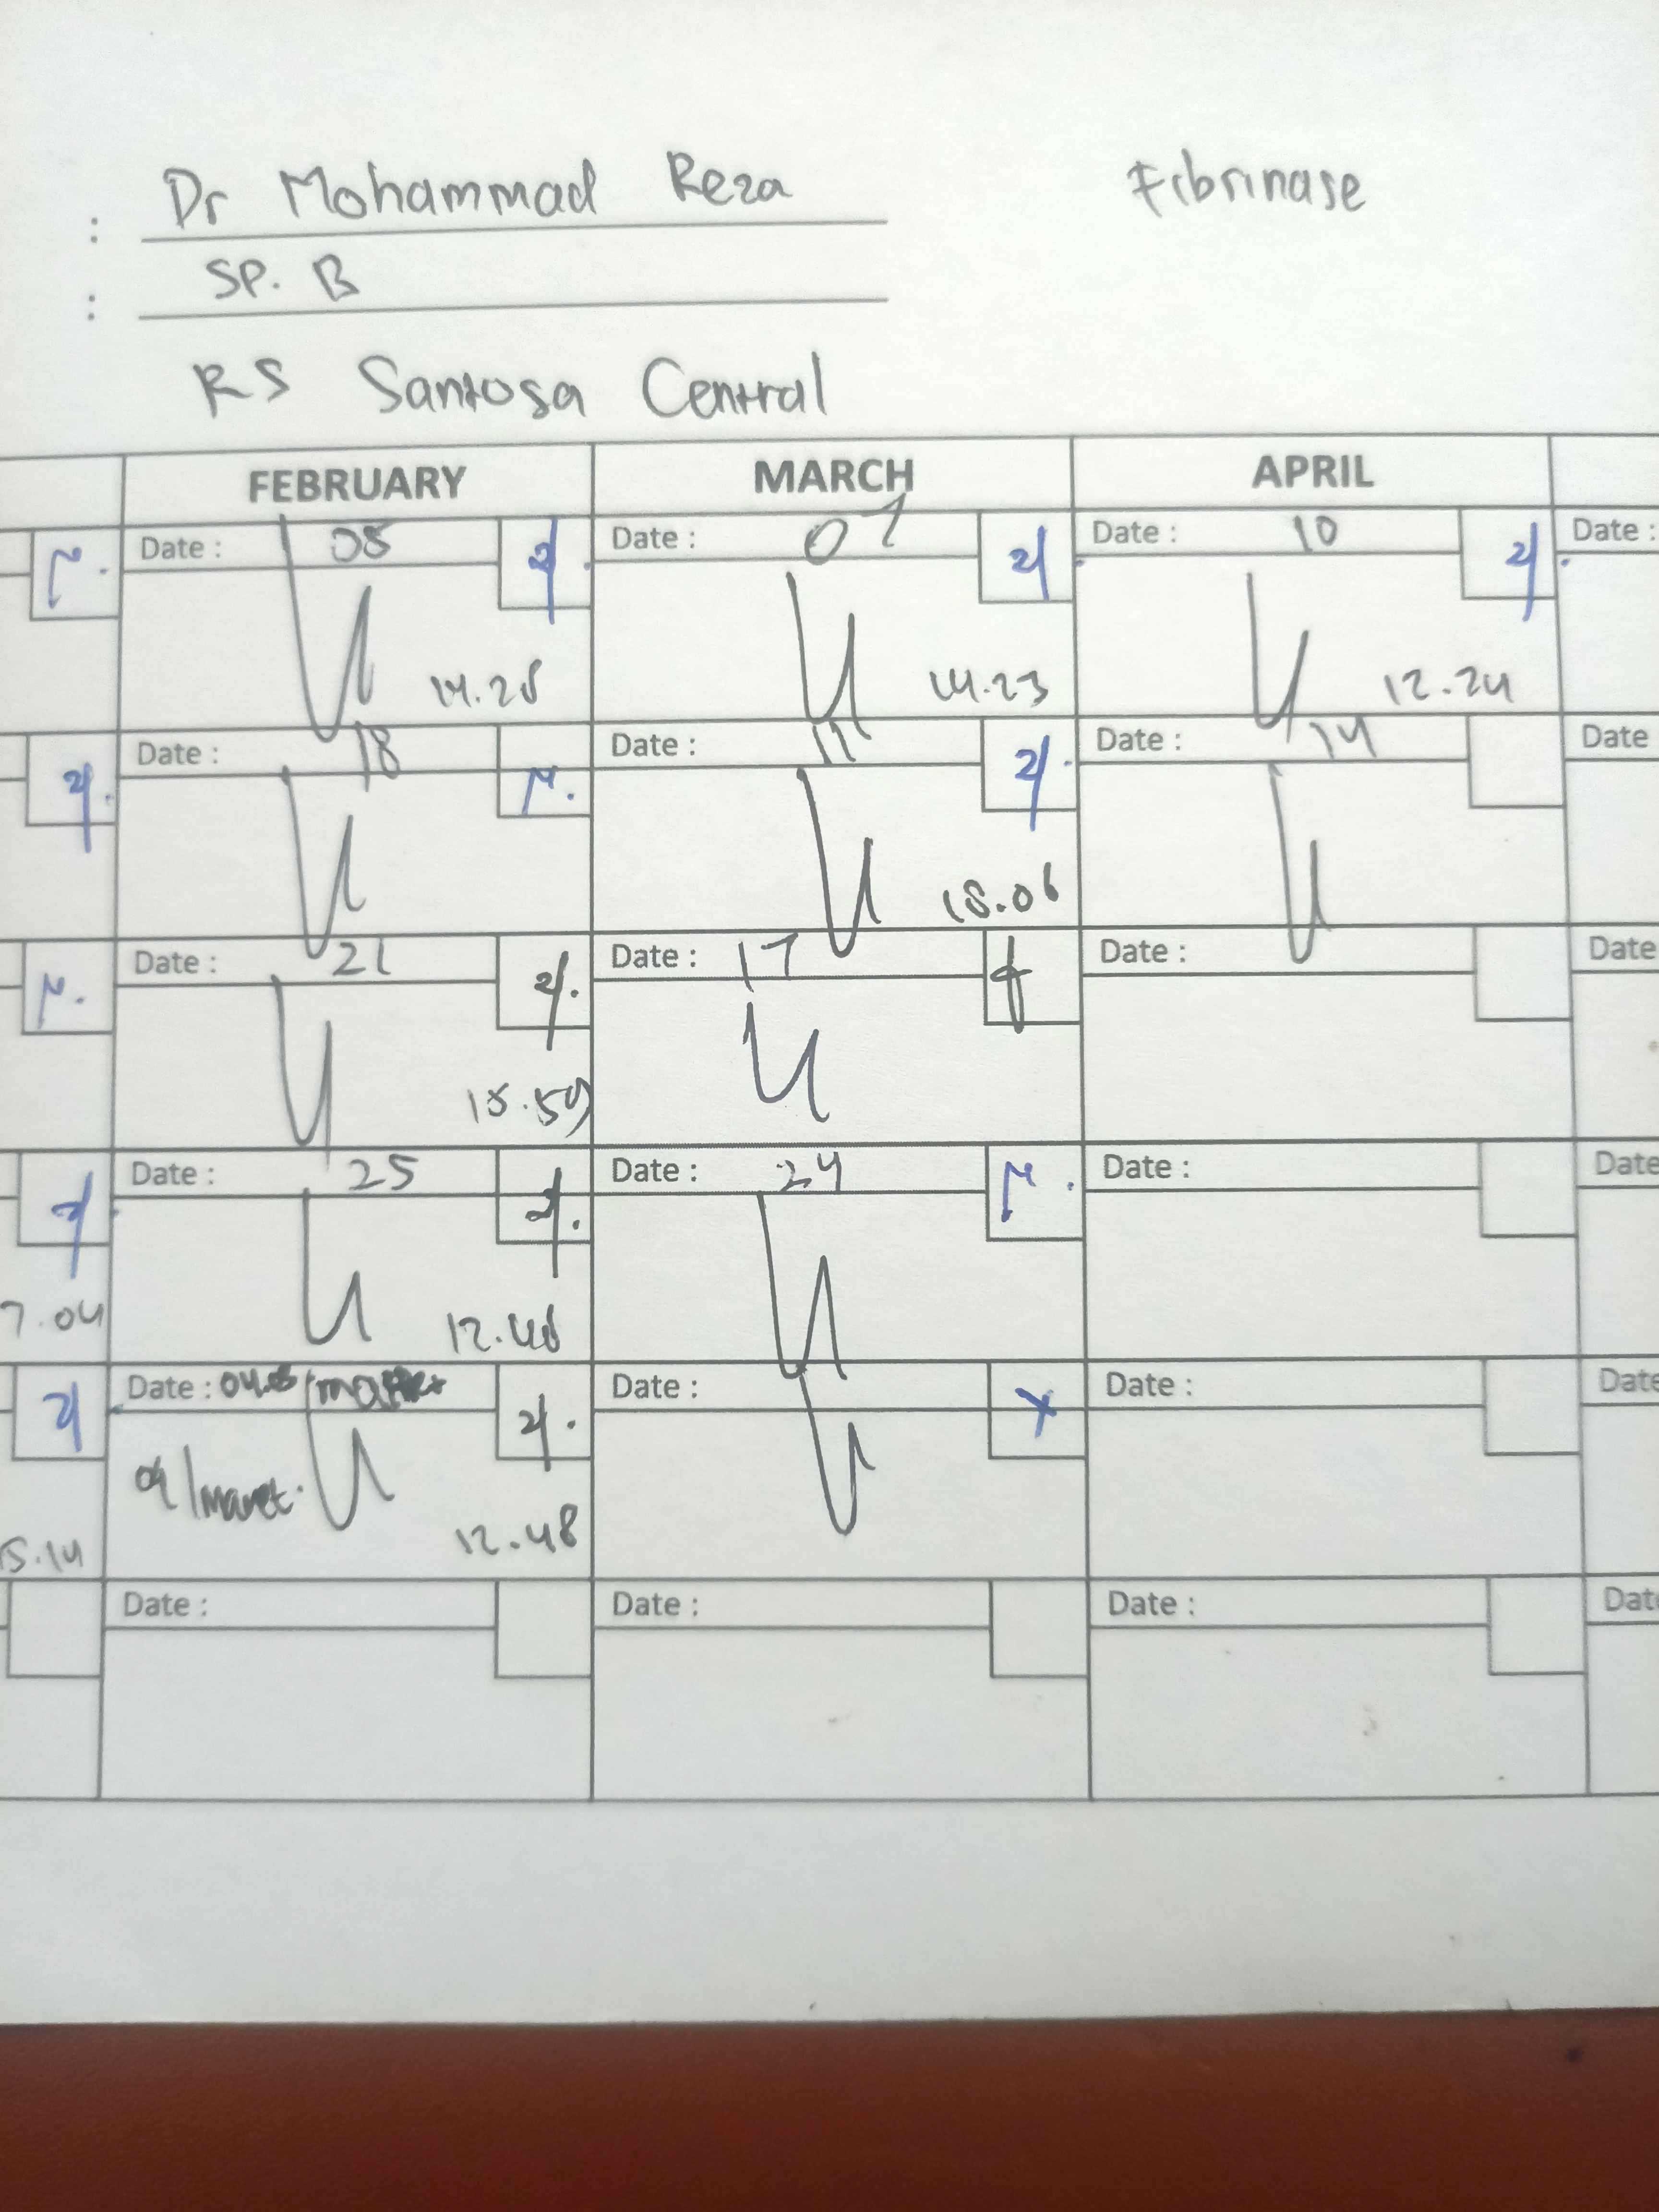 Dr Mohammad Reza Fibrinase
:
SP. B
:
RS Santosa Central
FEBRUARY MARCH APRIL
Date : 08 Date : 07 Date : 10 Date :
14.28 14.23 12.24
Date : 18 Date : 11 Date : 14 Date
15.06
Date : 21 Date : 17 Date : Date
15.59
Date : 25 Date : 24 Date : Date
7.04 12.48
Date : Date : Date : Date
04/maret.
5.14 12.48
Date : Date : Date : Date